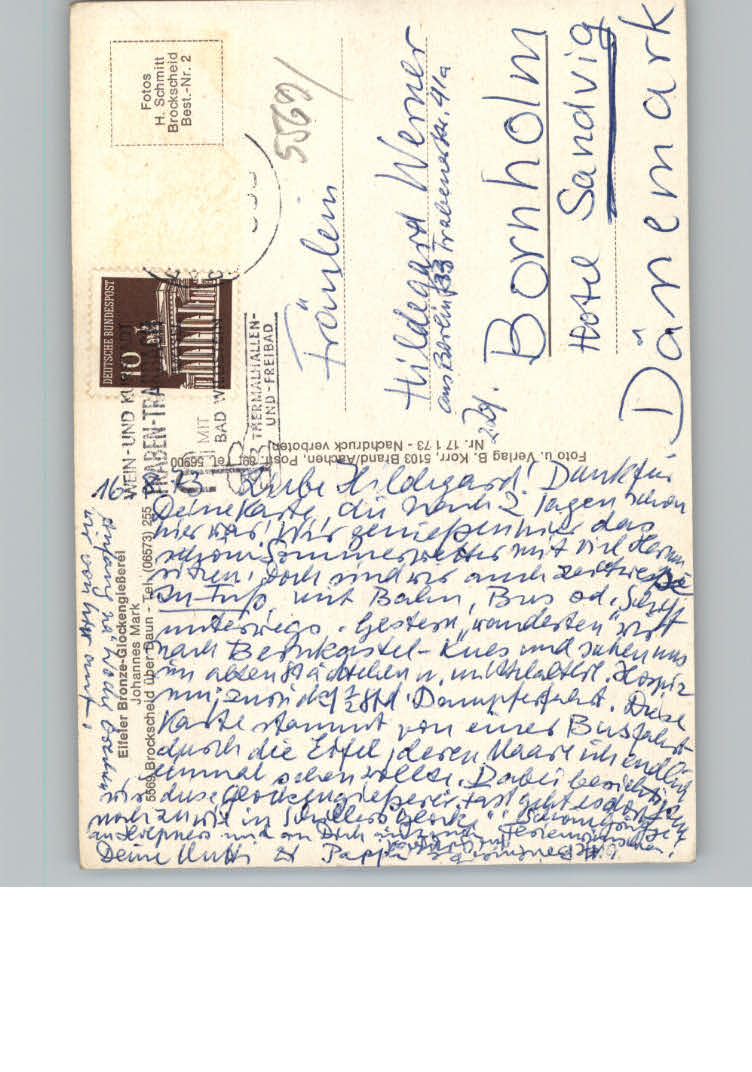 16. 73 Liebe Hildegard! Dank für
Deine Karte, die nach 2 Tagen schon
hier war! Wir genießen hier das
schöne Sommerwetter mit viel
sitzen. Doch sind wir auch zeitweise
zu Fuß, mit Bahn, Bus od. Schiff
unterwegs. Gestern "wanderten" wir
nach Bernkastel-Kues und sahen uns
im alten Städtchen u. mittelalterl. Hospiz
um, zurück Dampferfahrt. Diese
Karte stammt von einer Busfahrt
durch die Eifel, deren Maare ich endlich
einmal sehen wollte. Dabei besichtigten
wir diese Glockengießerei. Fast geht es dort
noch zu wie in Schillers Glocke".
und an Dich
Deine Mutti u Pappa
Anfang
wir von hier
Eifeler Bronze-Glockengießerei
Johannes Mark
5569 Brockscheid über Daun - Tel. (06573) 255
Foto u. Verlag B. Korr, 5103 Brand/Aachen, Postf. 89, Tel. 56900
Nr. 17 1 73 - Nachdruck verboten
Fotos
H. Schmitt
Brockscheid
Best.-Nr. 2
5569/
DEUTSCHE BUNDESPOST
10
WEIN- UND
TRABEN-TRARBACH
MIT
BAD WILDSTEIN
THERMALHALLEN-
UND-FREIBAD
Fräulein
Hildegard Werner
aus Berlin 33 Trabenerstr. 41a
Bornholm
Hotel Sandvig
Dänemark